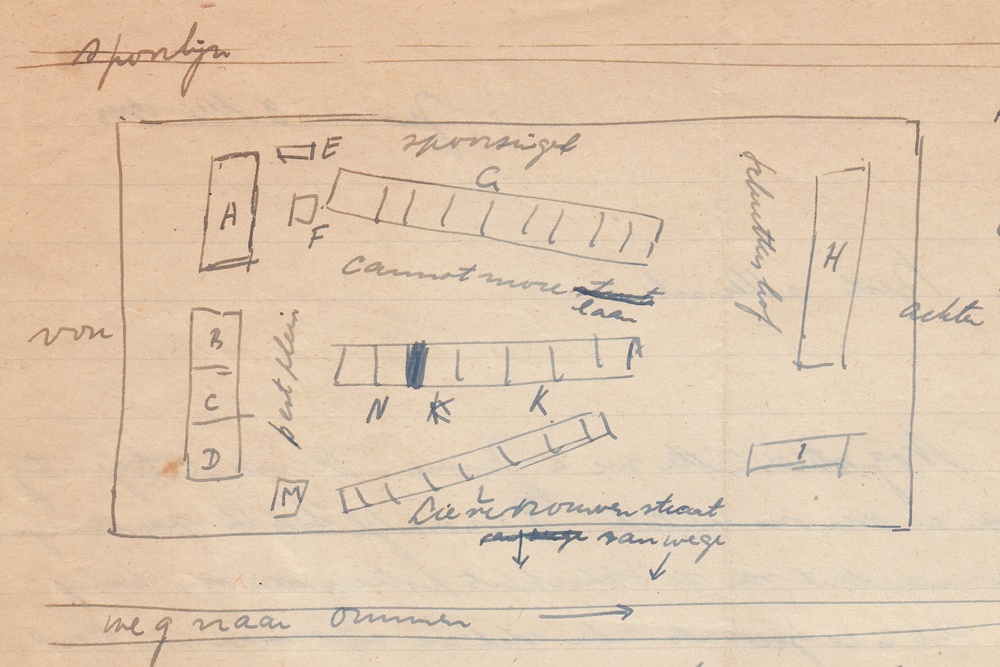 spoorlijn
E
spoorsingel
A
G
F
H
cannot more straat
laan
schuttershof
voor
achter
B
C
D
N
K
K
I
M
L
Lieve vrouwen straat
vanwege
weg naar Ommen